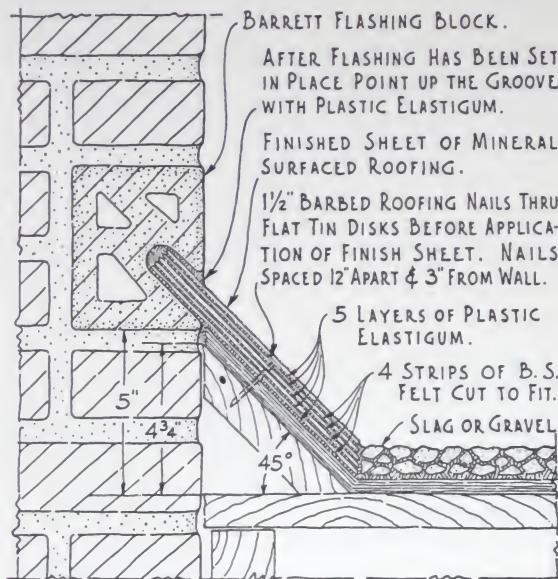 BARRETT FLASHING BLOCK.
AFTER FLASHING HAS BEEN SET
IN PLACE POINT UP THE GROOVE
WITH PLASTIC ELASTIGUM.
FINISHED SHEET OF MINERAL
SURFACED ROOFING.
1½" BARBED ROOFING NAILS THRU
FLAT TIN DISKS BEFORE APPLICA-
TION OF FINISH SHEET. NAILS
SPACED 12" APART & 3" FROM WALL.
5 LAYERS OF PLASTIC
ELASTIGUM.
4 STRIPS OF B.S.
FELT CUT TO FIT.
SLAG OR GRAVEL
5"
4¾"
45°